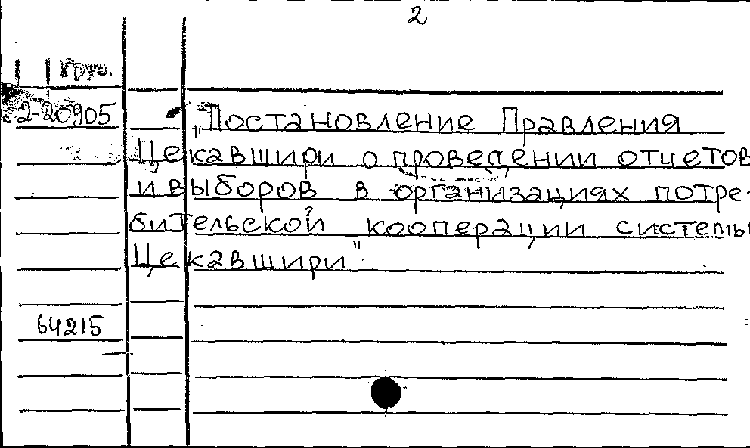 2
Груз.
2-20905
"Постановление Правления
Цекавшири о проведении отчетов
и выборов в организациях потре-
бительской кооперации системы
Цекавшири"
64215